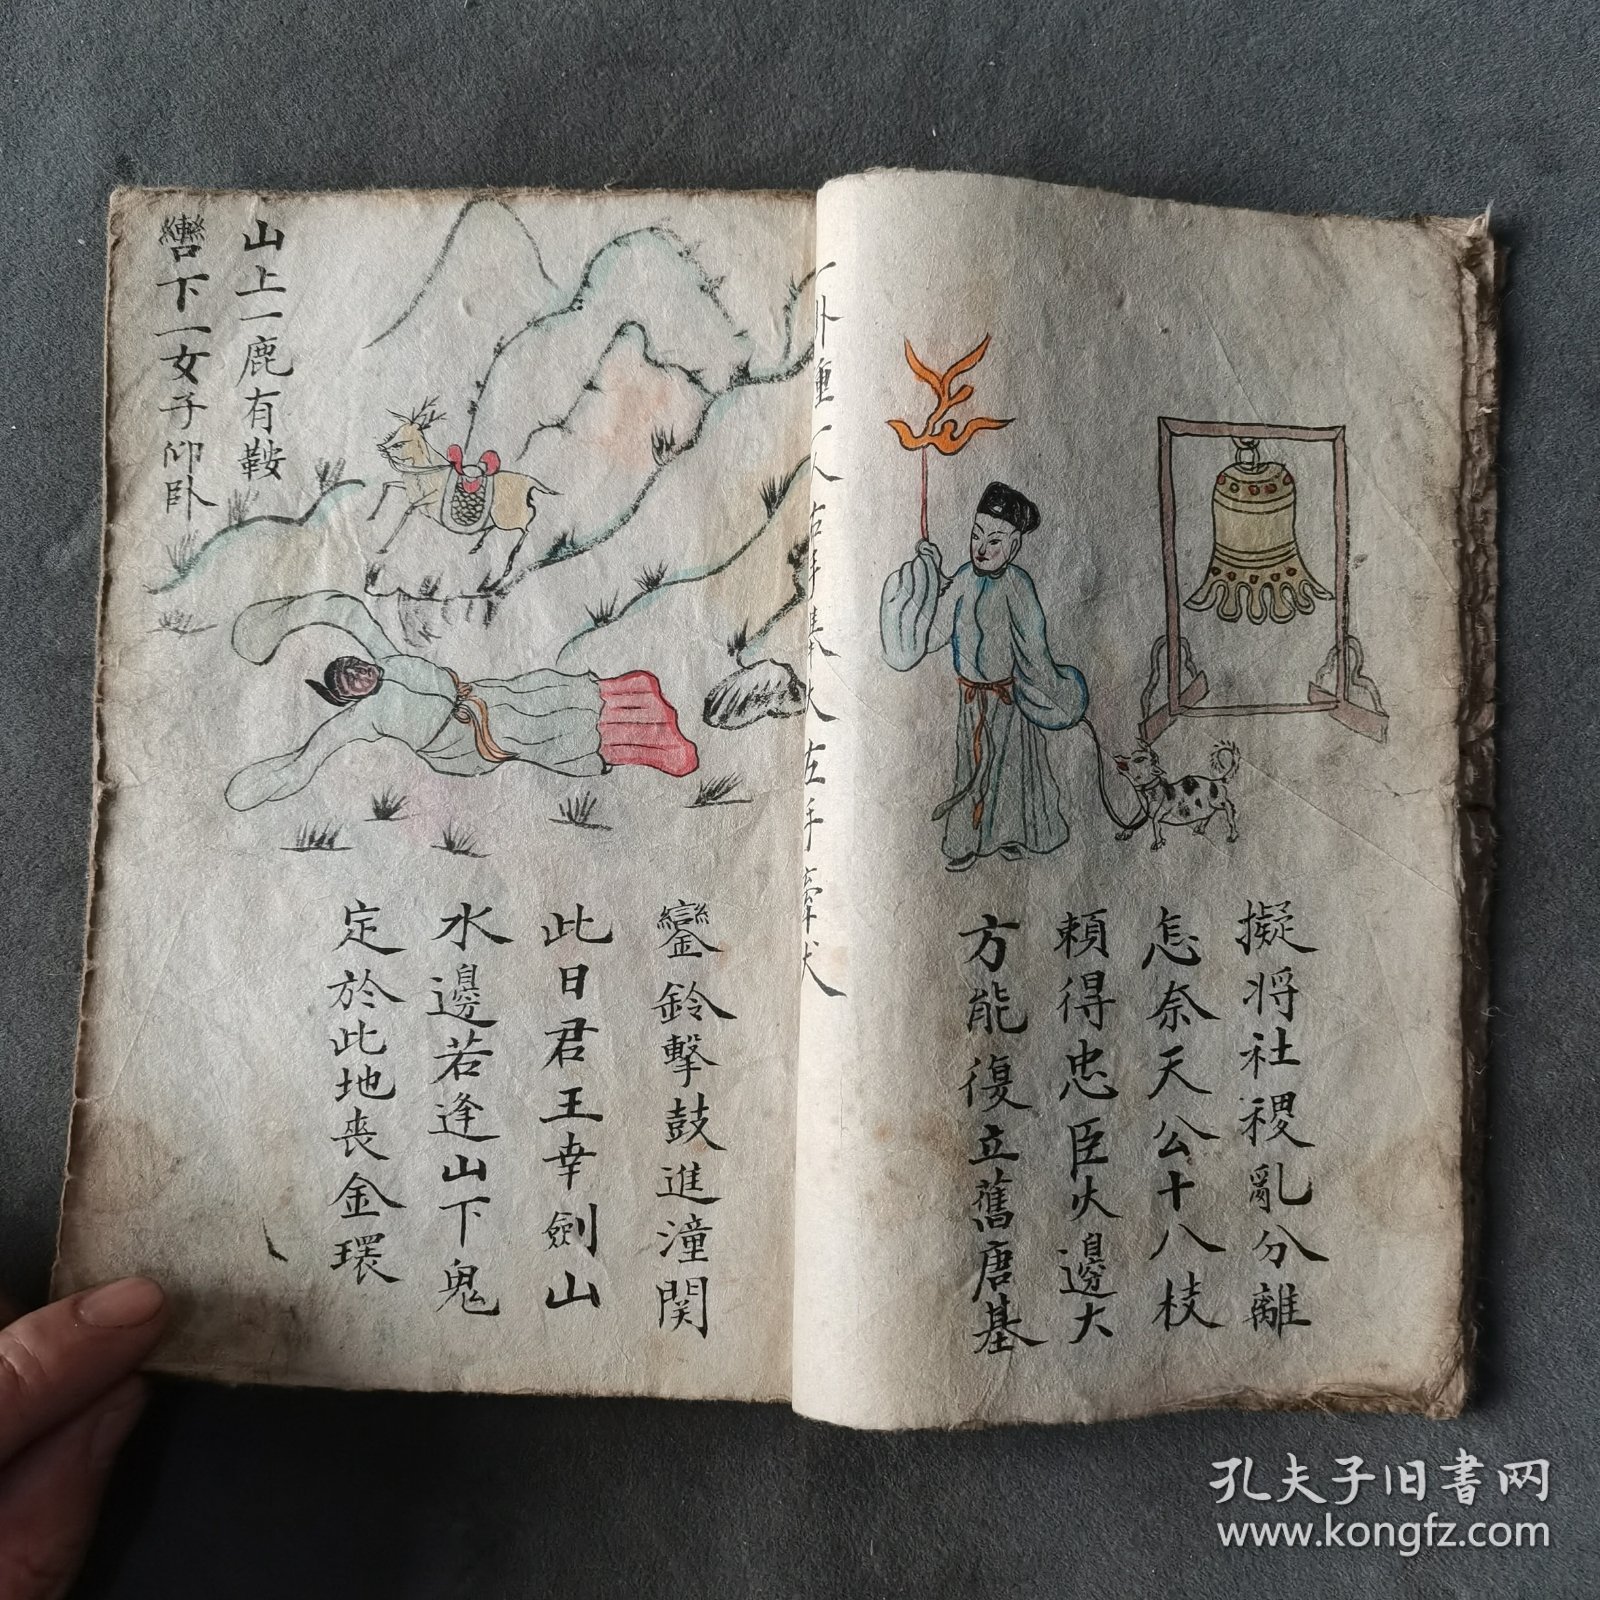 擬将社稷亂分離
怎奈天公十八枝
頼得忠臣火邊大
方能復立舊唐基
卦鐘一人右手擧火左手牽犬
山上一鹿有鞍
轡下一女子仰卧
鑾鈴擊鼓進潼関
此日君王幸劍山
水邊若逢山下鬼
定於此地喪金環
孔夫子旧书网
www.kongfz.com